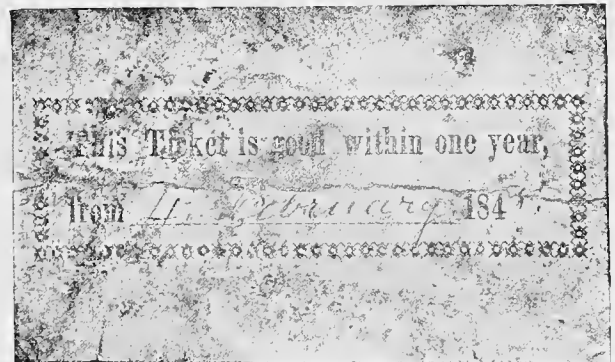 This Ticket is good within one year,
from 4. February 184